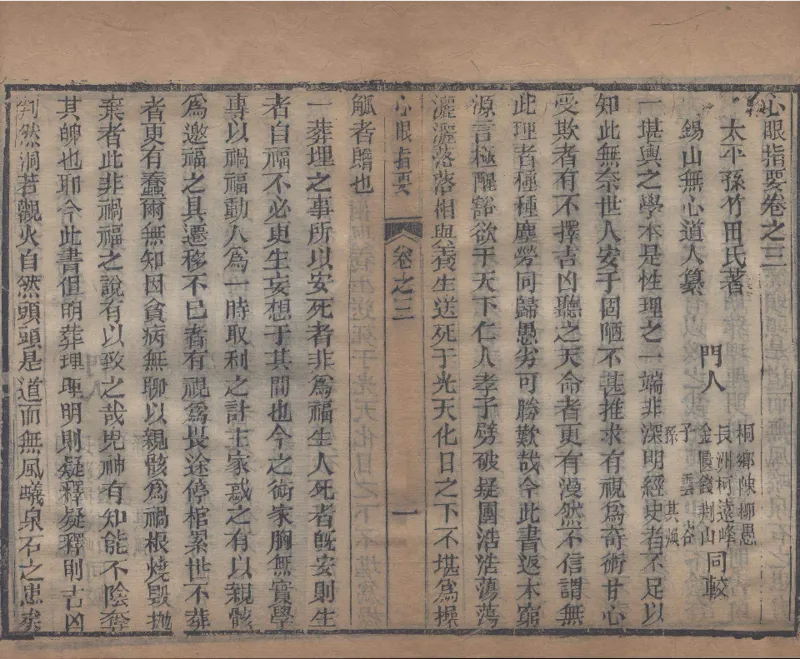 心眼指要卷之三
太平孫竹田氏著
錫山無心道人纂
門人
桐鄉陳柳愚
長洲柯遠峰
金匱錢荆山
子 雲谷
孫 其
同較
一堪輿之學本是性理之一端非深明經史者不足以
知此無奈世人安于固陋不甚推求有視爲奇術甘心
受欺者有不擇吉凶聽之天命者更有漠然不信謂無
此理者種種塵勞同歸愚劣可勝歎哉今此書返本窮
源言極醒豁欲于天下仁人孝子劈破疑團浩浩蕩蕩
灑灑落落相與養生送死于光天化日之下不堪爲操
心眼指要 卷之三 一
觚者贈也
一葬埋之事所以安死者非爲福生人死者旣安則生
者自福不必更生妄想于其間也今之術家胸無實學
專以禍福動人爲一時取利之計主家惑之有以親骸
爲邀福之具遷移不已者有視爲畏途停棺累世不葬
者更有蠢爾無知因貧病無聊以親骸爲禍根燒毁拋
棄者此非禍福之說有以致之哉鬼神有知能不陰奪
其魄也耶今此書但明葬理理明則疑釋疑釋則吉凶
判然洞若觀火自然頭頭是道而無風蟻泉石之患矣